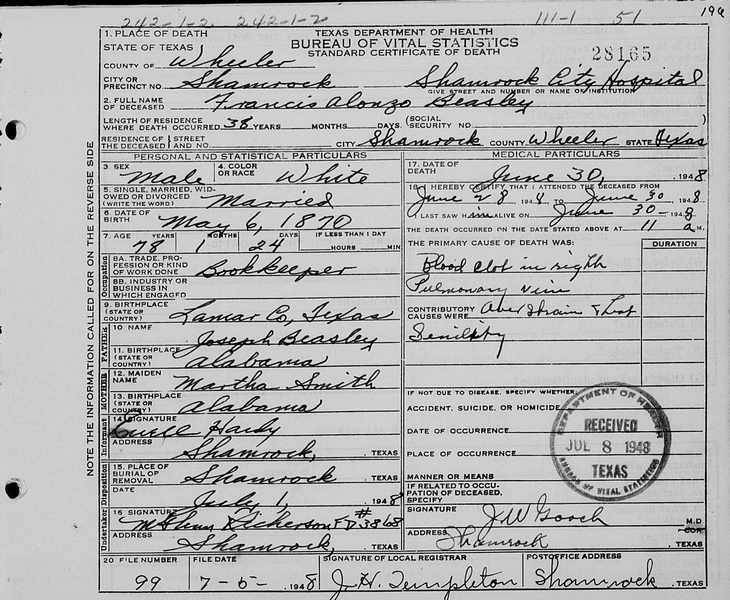 242-1-2 242-1-2 111-1 51 199
1. PLACE OF DEATH TEXAS DEPARTMENT OF HEALTH
STATE OF TEXAS BUREAU OF VITAL STATISTICS
COUNTY OF Wheeler STANDARD CERTIFICATE OF DEATH 28165
CITY OR PRECINCT NO. Shamrock Shamrock City Hospital
GIVE STREET AND NUMBER OR NAME OF INSTITUTION
2. FULL NAME OF DECEASED Francis Alonzo Beasley
LENGTH OF RESIDENCE WHERE DEATH OCCURRED 38 YEARS MONTHS DAYS (SOCIAL SECURITY NO.
RESIDENCE OF THE DECEASED STREET AND NO. CITY Shamrock COUNTY Wheeler STATE Texas
PERSONAL AND STATISTICAL PARTICULARS
3. SEX Male 4. COLOR OR RACE White
5. SINGLE, MARRIED, WIDOWED OR DIVORCED (WRITE THE WORD) Married
6. DATE OF BIRTH May 6, 1870
7. AGE YEARS MONTHS DAYS IF LESS THAN 1 DAY
78 1 24 HOURS MIN
Occupation
8A. TRADE, PROFESSION OR KIND OF WORK DONE Bookkeeper
8B. INDUSTRY OR BUSINESS IN WHICH ENGAGED
9. BIRTHPLACE (STATE OR COUNTRY) Lamar Co, Texas
FATHER
10. NAME Joseph Beasley
11. BIRTHPLACE (STATE OR COUNTRY) Alabama
MOTHER
12. MAIDEN NAME Martha Smith
13. BIRTHPLACE (STATE OR COUNTRY) Alabama
Informant
14. SIGNATURE Hardy
ADDRESS Shamrock, TEXAS
Disposition
15. PLACE OF BURIAL OR REMOVAL Shamrock TEXAS
DATE July 1, 1948
Undertaker
16 SIGNATURE #3868
ADDRESS Shamrock, TEXAS
MEDICAL PARTICULARS
17. DATE OF DEATH June 30, 1948
18. I HEREBY CERTIFY THAT I ATTENDED THE DECEASED FROM
June 28 1948 TO June 30 1948
I LAST SAW him ALIVE ON June 30 1948.
THE DEATH OCCURRED ON THE DATE STATED ABOVE AT 11 a M.
THE PRIMARY CAUSE OF DEATH WAS: DURATION
Blood clot in right
Pulmonary vein
CONTRIBUTORY CAUSES WERE Over strain
IF NOT DUE TO DISEASE, SPECIFY WHETHER
ACCIDENT, SUICIDE, OR HOMICIDE
DATE OF OCCURRENCE
PLACE OF OCCURRENCE
MANNER OR MEANS
IF RELATED TO OCCUPATION OF DECEASED, SPECIFY
SIGNATURE J.W. Gooch M.D.
ADDRESS Shamrock, TEXAS
DEPARTMENT OF HEALTH
RECEIVED
JUL 8 1948
TEXAS
BUREAU OF VITAL STATISTICS
20 FILE NUMBER FILE DATE SIGNATURE OF LOCAL REGISTRAR POSTOFFICE ADDRESS
99 7-5- 1948 J.H. Templeton Shamrock TEXAS
NOTE THE INFORMATION CALLED FOR ON THE REVERSE SIDE